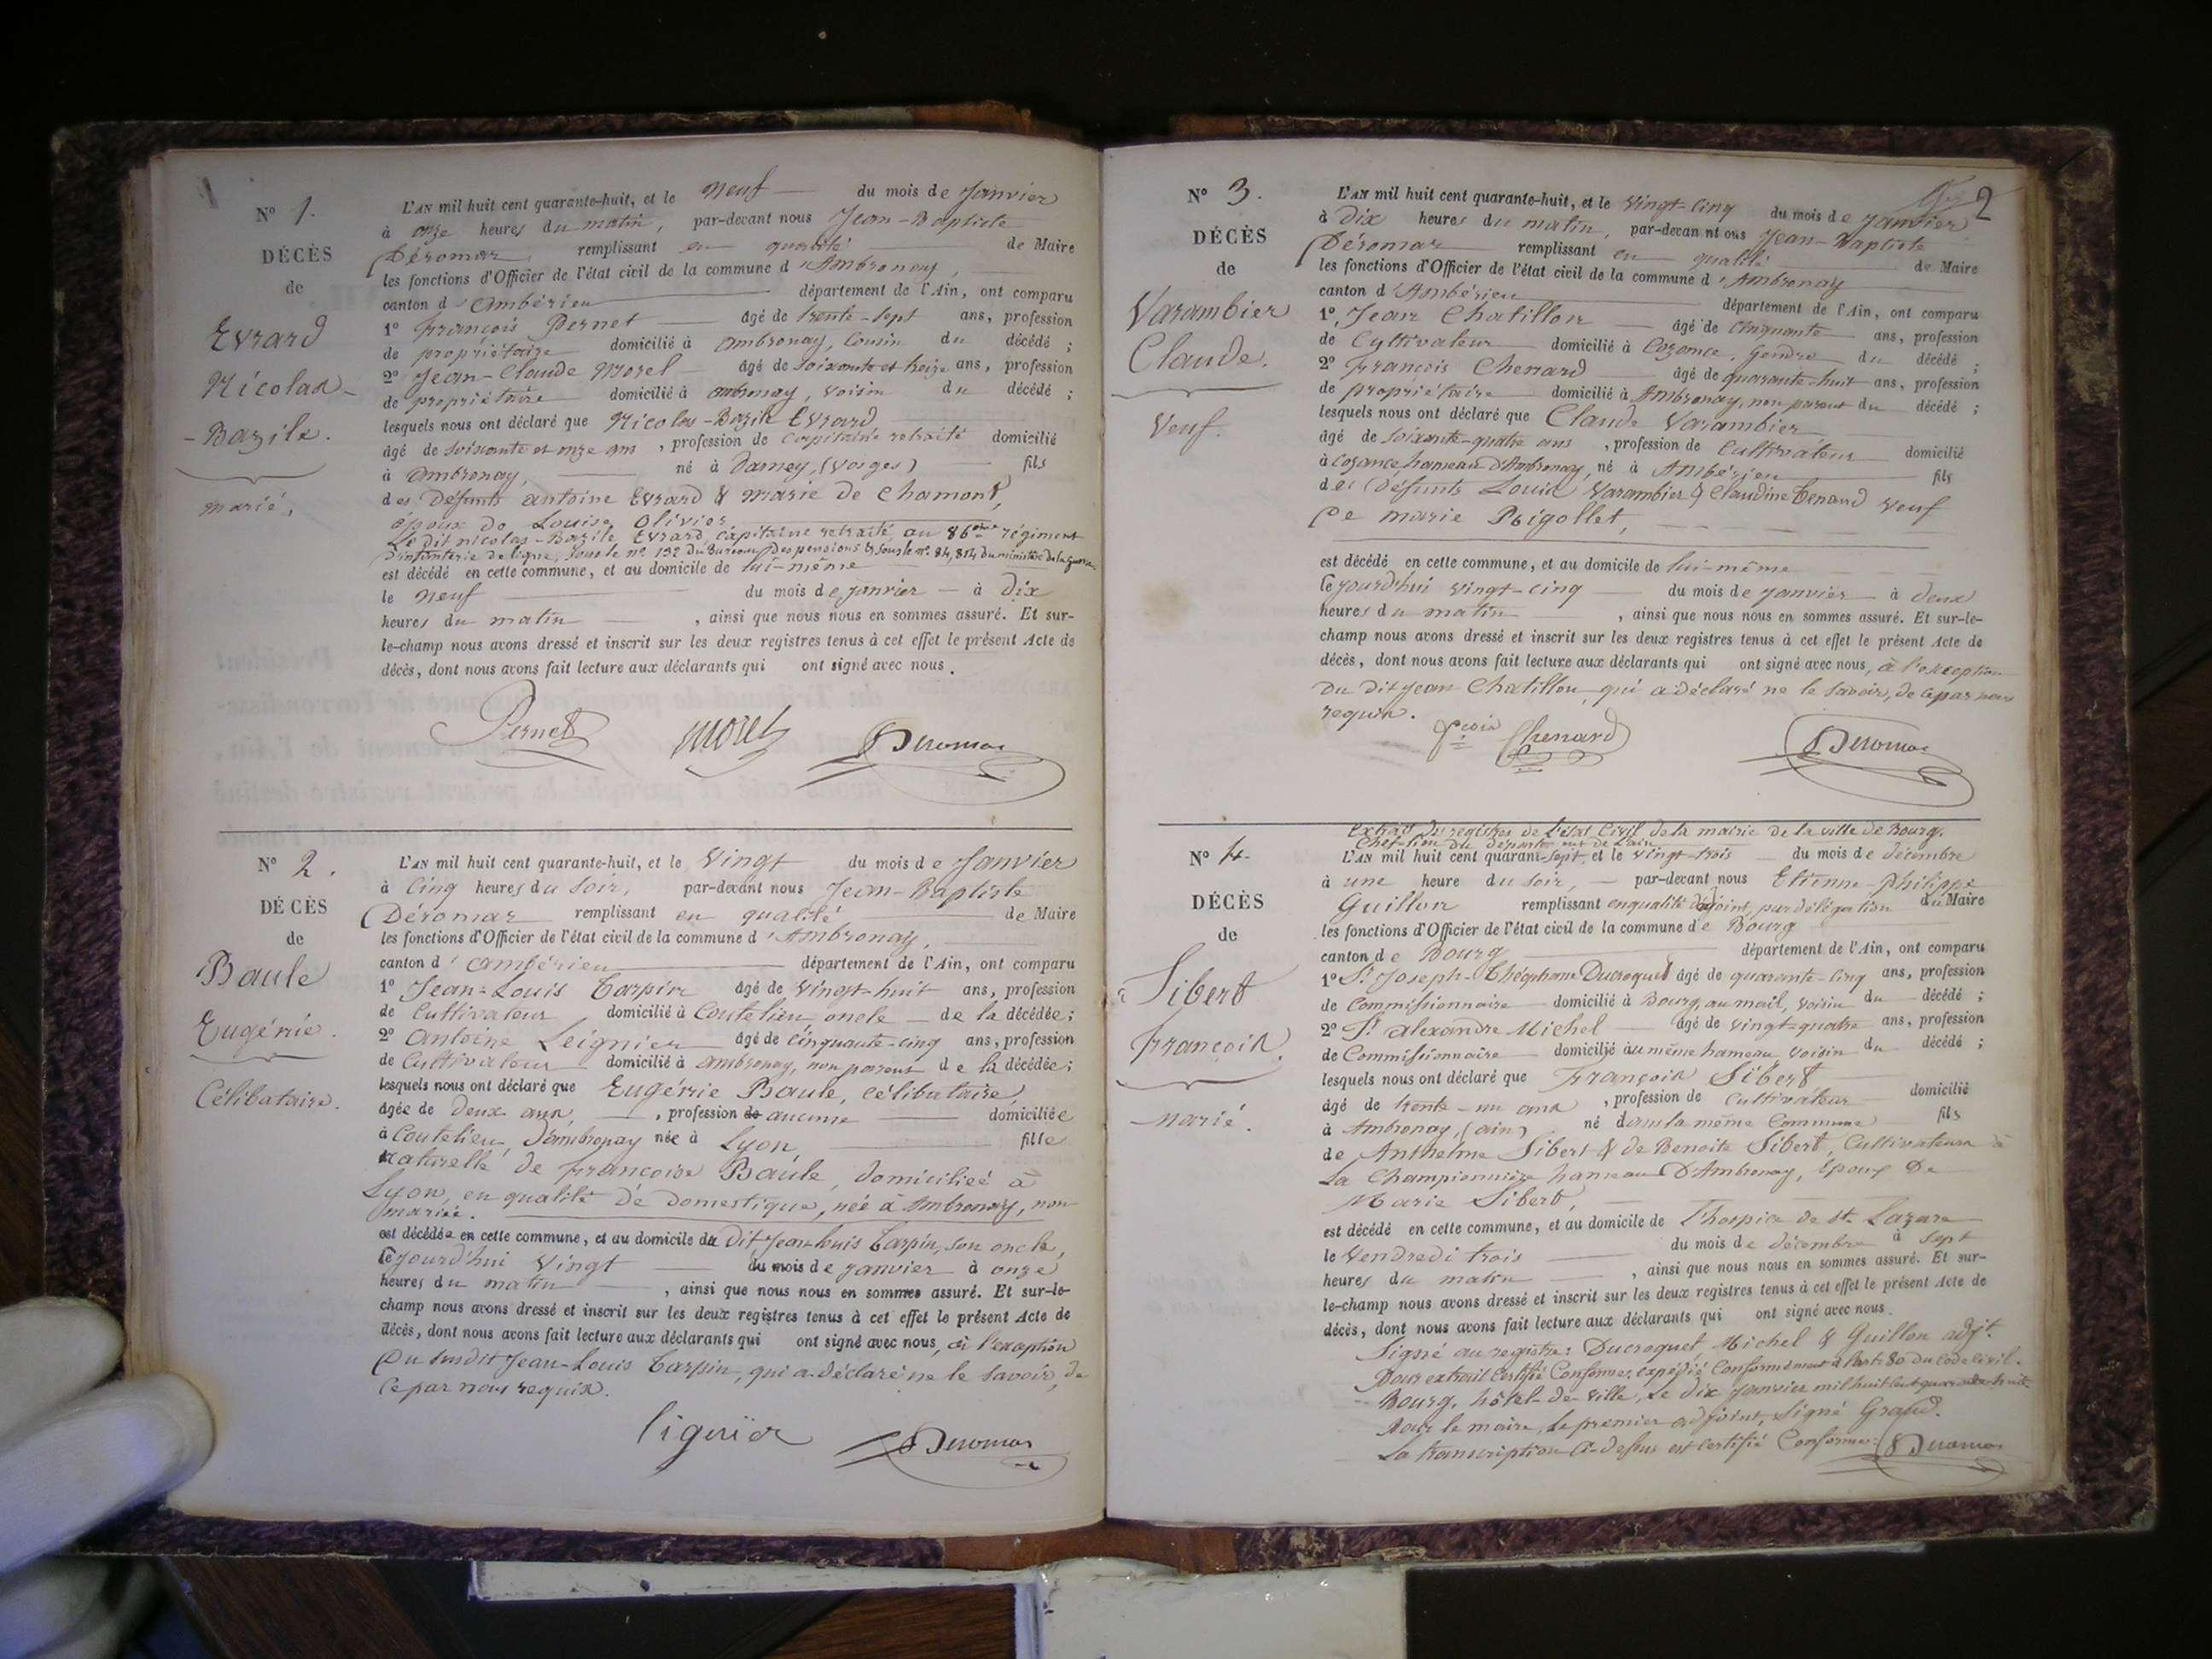 N° 1.
DÉCÈS
de
Evrard
Nicolas-
-Bazile.
marié.
L'AN mil huit cent quarante-huit, et le neuf du mois de Janvier
à onze heures du matin, par-devant nous Jean-Baptiste
Déromas, remplissant en qualité de Maire
les fonctions d'Officier de l'état civil de la commune d'Ambronay,
canton d'Ambérieu département de l'Ain, ont comparu
1° François Pernet âgé de trente-sept ans, profession
de propriétaire domicilié à Ambronay, Cousin du décédé ;
2° Jean-Claude Morel âgé de soixante et treize ans, profession
de propriétaire domicilié à ambronay, voisin du décédé ;
lesquels nous ont déclaré que Nicolas-Bazile Evrard
âgé de soixante et onze ans, profession de Capitaine retraité domicilié
à Ambronay, né à Darney, (Vosges) fils
des défunts antoine Evrard & marie de Chamont,
époux de Louise Olivier
Le dit nicolas-Bazile Evrard, capitaine retraité au 86ème régiment
d'infanterie de ligne, sous le n° 132 du Bureau des pensions & sous le n° 84,814 du ministère de la Guerre
est décédé en cette commune, et au domicile de lui-même
le neuf du mois de janvier à Dix
heures du matin, ainsi que nous nous en sommes assuré. Et sur-
le-champ nous avons dressé et inscrit sur les deux registres tenus à cet effet le présent Acte de
décès, dont nous avons fait lecture aux déclarants qui ont signé avec nous.
Pernet Morel Deromas
N° 2.
DÉCÈS
de
Baule
Eugénie.
Célibataire.
L'AN mil huit cent quarante-huit, et le Vingt du mois de Janvier
à Cinq heures du soir, par-devant nous Jean-Baptiste
Déromas remplissant en qualité de Maire
les fonctions d'Officier de l'état civil de la commune d'Ambronay,
canton d'Ambérieu département de l'Ain, ont comparu
1° Jean-Louis Tarpin âgé de Vingt-huit ans, profession
de Cultivateur domicilié à Coutelieu oncle de la décédée ;
2° Antoine Leignier âgé de Cinquante-cinq ans, profession
de Cultivateur domicilié à ambronay, non parent de la décédée ;
lesquels nous ont déclaré que Eugénie Baule, célibataire,
âgée de Deux ans, profession de aucune domiciliée
à Coutelieu, d'ambronay née à Lyon, fille
naturelle de Françoise Baule, domiciliée à
Lyon, en qualité de domestique, née à Ambronay, non
mariée.
est décédée en cette commune, et au domicile du dit Jean-Louis Tarpin, son oncle,
cejourd'hui Vingt du mois de janvier à onze
heures du matin, ainsi que nous nous en sommes assuré. Et sur-le-
champ nous avons dressé et inscrit sur les deux registres tenus à cet effet le présent Acte de
décès, dont nous avons fait lecture aux déclarants qui ont signé avec nous, à l'exception
Du susdit Jean-Louis Tarpin, qui a déclaré ne le savoir, de
ce par nous requis.
liguier Deromas
2
N° 3.
DÉCÈS
de
Varambier
Claude.
Veuf.
L'AN mil huit cent quarante-huit, et le Vingt-cinq du mois de janvier
à Dix heures du matin, par-devan nt ous Jean-Baptiste
Déromas remplissant en qualité de Maire
les fonctions d'Officier de l'état civil de la commune d'Ambronay
canton d'Ambérieu département de l'Ain, ont comparu
1° Jean Chatillon âgé de Cinquante ans, profession
de Cultivateur domicilié à Cozance, Gendre du décédé ;
2° François Chenard âgé de quarante-huit ans, profession
de propriétaire domicilié à Ambronay, non parent du décédé ;
lesquels nous ont déclaré que Claude Varambier
âgé de soixante-quatre ans, profession de Cultivateur domicilié
à Cozance, hameau d'Ambronay, né à Ambérieu fils
des défunts Louis Varambier & Claudine Tenand veuf
De marie Rigollet,
est décédé en cette commune, et au domicile de lui-même
cejourd'hui vingt-cinq du mois de janvier à deux
heures du matin, ainsi que nous nous en sommes assuré. Et sur-le-
champ nous avons dressé et inscrit sur les deux registres tenus à cet effet le présent Acte de
décès, dont nous avons fait lecture aux déclarants qui ont signé avec nous, à l'exception
Du dit Jean Chatillon, qui a déclaré ne le savoir, de ce par nous
requis.
Chenard Deromas
Extrait des registres de l'état civil de la mairie de la ville de Bourg,
Chef-lieu du département de l'ain
N° 4.
DÉCÈS
de
Sibert
François.
Marié.
L'AN mil huit cent quarant-sept et le Vingt-trois du mois de décembre
à une heure du soir, par-devant nous Etienne-philippe
Guillon remplissant en qualité d'adjoint, par délégation du Maire
les fonctions d'Officier de l'état civil de la commune de Bourg
canton de Bourg département de l'Ain, ont comparu
1° Sr Joseph-Théophane Ducroquet âgé de quarante-cinq ans, profession
de Commissionnaire domicilié à Bourg, au mail, voisin du décédé ;
2° Sr alexandre Michel âgé de vingt-quatre ans, profession
de Commissionnaire domicilié au même hameau voisin du décédé ;
lesquels nous ont déclaré que François Sibert
âgé de trente-un ans, profession de Cultivateur domicilié
à Ambronay, (ain) né dans la même Commune fils
de Anthelme Sibert & de Benoite Sibert, Cultivateurs à
La Championnière hameau D'Ambronay, Epoux De
Marie Sibert,
est décédé en cette commune, et au domicile de l'hospice de St. Lazare
le Vendredi trois du mois de décembre à sept
heures du matin, ainsi que nous nous en sommes assuré. Et sur-
le-champ nous avons dressé et inscrit sur les deux registres tenus à cet effet le présent Acte de
décès, dont nous avons fait lecture aux déclarants qui ont signé avec nous.
Signé au registre: Ducroquet, Michel & Guillon adjt.
Pour extrait certifié Conforme, expédié Conformément à l'art. 80 du Code Civil.
Bourg, hôtel-de-ville, Le dix Janvier mil huit cent quarante-huit
Pour le maire, Le premier adjoint, Signé Graud.
La transcription ci-dessus est certifié Conforme: Deromas